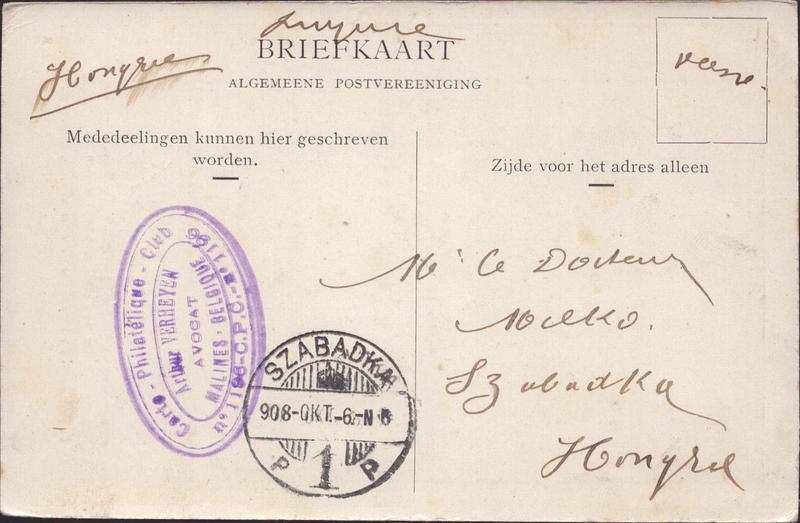 BRIEFKAART
Hongrie
ALGEMEENE POSTVEREENIGING
Mededeelingen kunnen hier geschreven
worden.
Zijde voor het adres alleen
Carto-Philatélique-Club
Arthur VERHEYEN
AVOCAT
MALINES-BELGIQUE
n: 1196-C.P.C.-n: 1196
SZABADKA
908-OKT.-6-N
P 1 P
Mr le Docteur
Milko.
Szabadka
Hongrie